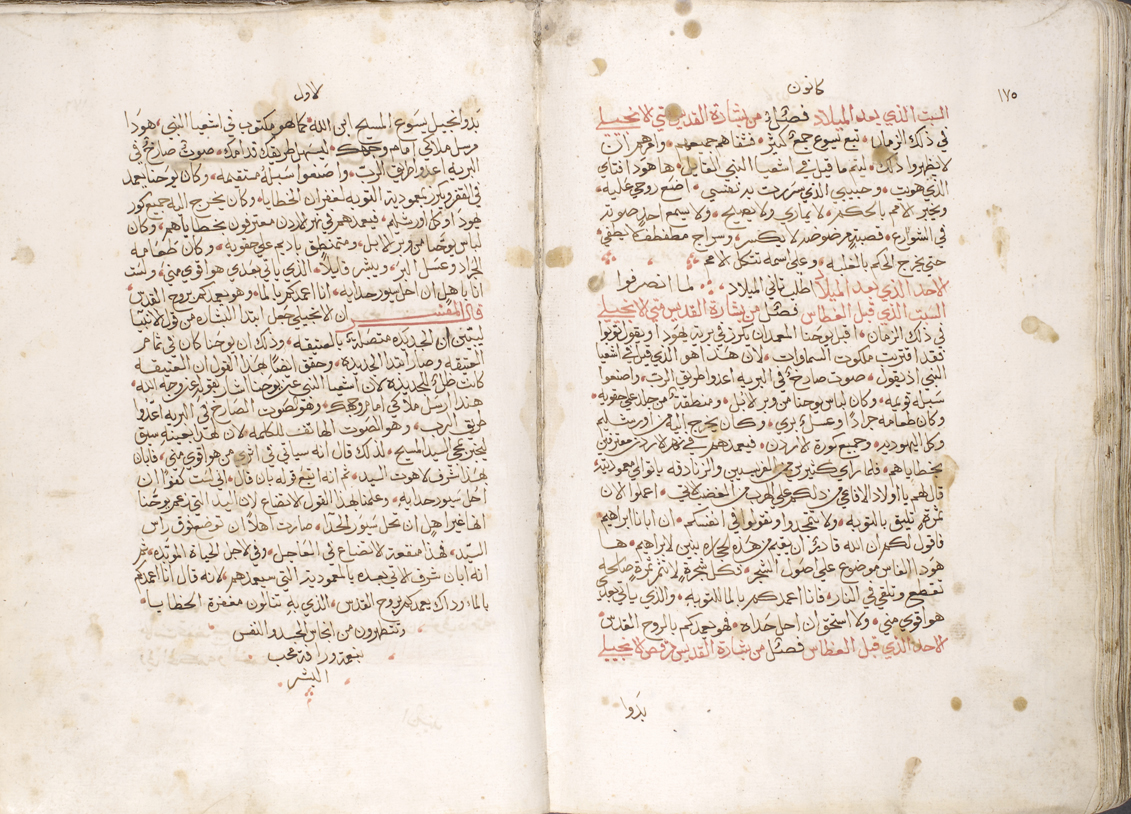 ١٧٥
كانون
السبت الذي بعد الميلاد فصل من بشارة القديس متي الانجيلي
في ذلك الزمان تبع يسوع جمع كثير فشفاهم جميعهم وامرهم ان
لا يظهروا ذلك ليتم ما قيل في اشعيا النبي القايل ها هوذا فتاي
الذي هويت وحبيبي الذي سرت به نفسي اضع روحي عليه
ويخبر الامم بالحكم لا يماري ولا يصيح ولا يسمع احد صوته
في الشوارع قصبة مرضوضه لا يكسر وسراج مطفطف لا يطفي
حتى يخرج الحكم بالغلبه وعلى اسمه تتكل الامم
الاحد الذي بعد الميلاد اطلب ثاني الميلاد لما انصرفوا
السبت الذي قبل الغطاس فصل من بشارة القديس متي الانجيلي
في ذلك الزمان اقبل يوحنا المعمدان يكرز في برية يهودا ويقول توبوا
فقد اقتربت ملكوت السماوات لان هذا هو الذي قيل في اشعيا
النبي اذ يقول صوت صارخ في البريه اعدوا طريق الرب واصنعوا
سبله قويمه وكان لباس يوحنا من وبر الابل ومنطقة من جلد على حقويه
وكان طعامه جرادا وعسل بري وكان يخرج اليه من اورشليم
وكل اليهوديه وجميع كورة الاردن فيعمدهم في نهر الاردن معترفين
بخطاياهم فلما راي كثير من الفريسيين والزنادقه ياتوا الى معموديته
قال لهم يا اولاد الافاعي من دلكم على الهرب من الغضب الاتي اعملوا الان
ثمرة تليق بالتوبه ولا تفتخروا وتقولوا في انفسكم ان ابانا ابراهيم
فاقول لكم ان الله قادر ان يقيم من هذه الحجاره بنين لابراهيم ها
هوذا الفاس موضوع على اصول الشجر فكل شجرة لا تثمر ثمرة صالحه
تقطع وتلقى في النار فانا اعمدكم بالما للتوبه والذي ياتي بعدي
هو اقوى مني ولا استحق ان احل حذاه فهو يعمدكم بالروح القدس
الاحد الذي قبل الغطاس فصل من بشارة القديس مرقص الانجيلي
بدوا
لاول
بدو انجيل يسوع المسيح ابن الله كما هو مكتوب في اشعيا النبي هوذا
مرسل ملاكي امام وجهك ليسهل طريقك قدامك صوت صارخ في
البريه اعدوا طريق الرب واصنعوا سبله مستقيمه وكان يوحنا يعمد
في القفر ويكرز بمعمودية التوبه لغفران الخطايا وكان يخرج اليه جميع كور
يهودا وكل اورشليم فيعمدهم في نهر الاردن معترفون بخطاياهم وكان
لباس يوحنا من وبر الابل ومتمنطق بادم على حقويه وكان طعامه
الجراد وعسل البر وبشر قايلا الذي ياتي بعدي هو اقوى مني ولست
انا باهل ان احل سيور حذايه انا اعمدكم بالما وهو يعمدكم بروح القدس
قال المفسر ان الانجيلي جعل ابتدا البشاره من قول الانبيا
ليبين ان الحديده متصلة بالعتيقه وذلك ان يوحنا كان في تمام
العتيقه وصار ابتدا الحديده وحقق ايضا هذا القول ان العتيقه
كانت ظل الحديده لان اشعيا النبي عن يوحنا انه يقول عن وجه الله
هذا ارسل ملاكي امام وجهك وهو لصوت الصارخ في البريه اعدوا
طريق الرب وهو الصوت الهاتف للكلمه لان هذا بعينه سبق
ليخبر بمجي السيد المسيح لذلك قال انه سياتي في اثري من هو اقوى مني فابان
بهذا شرف لاهوت السيد ثم انه اتبع قوله بان قال اني لست كفوا ان
احل سيور حذايه وعلمنا بهذا القول الاتضاع لان اليد التي عمد يوحنا
انها غير اهل ان تحل سيور الحذا صارت اهلا ان توضع فوق راس
السيد فهذا منفعة الاتضاع في العاجل وفي الاجل الحياة الموبده ثم
انه ابان شرف الاتي بعده بالمعموديه التي سيعمدهم لانه قال انا اعمدكم
بالما وذاك يعمدكم بروح القدس الذي به تنالون مغفرة الخطايا
وتتطهرون من انجاس الجسد والنفس
بنعمة ورافة محب
البشر